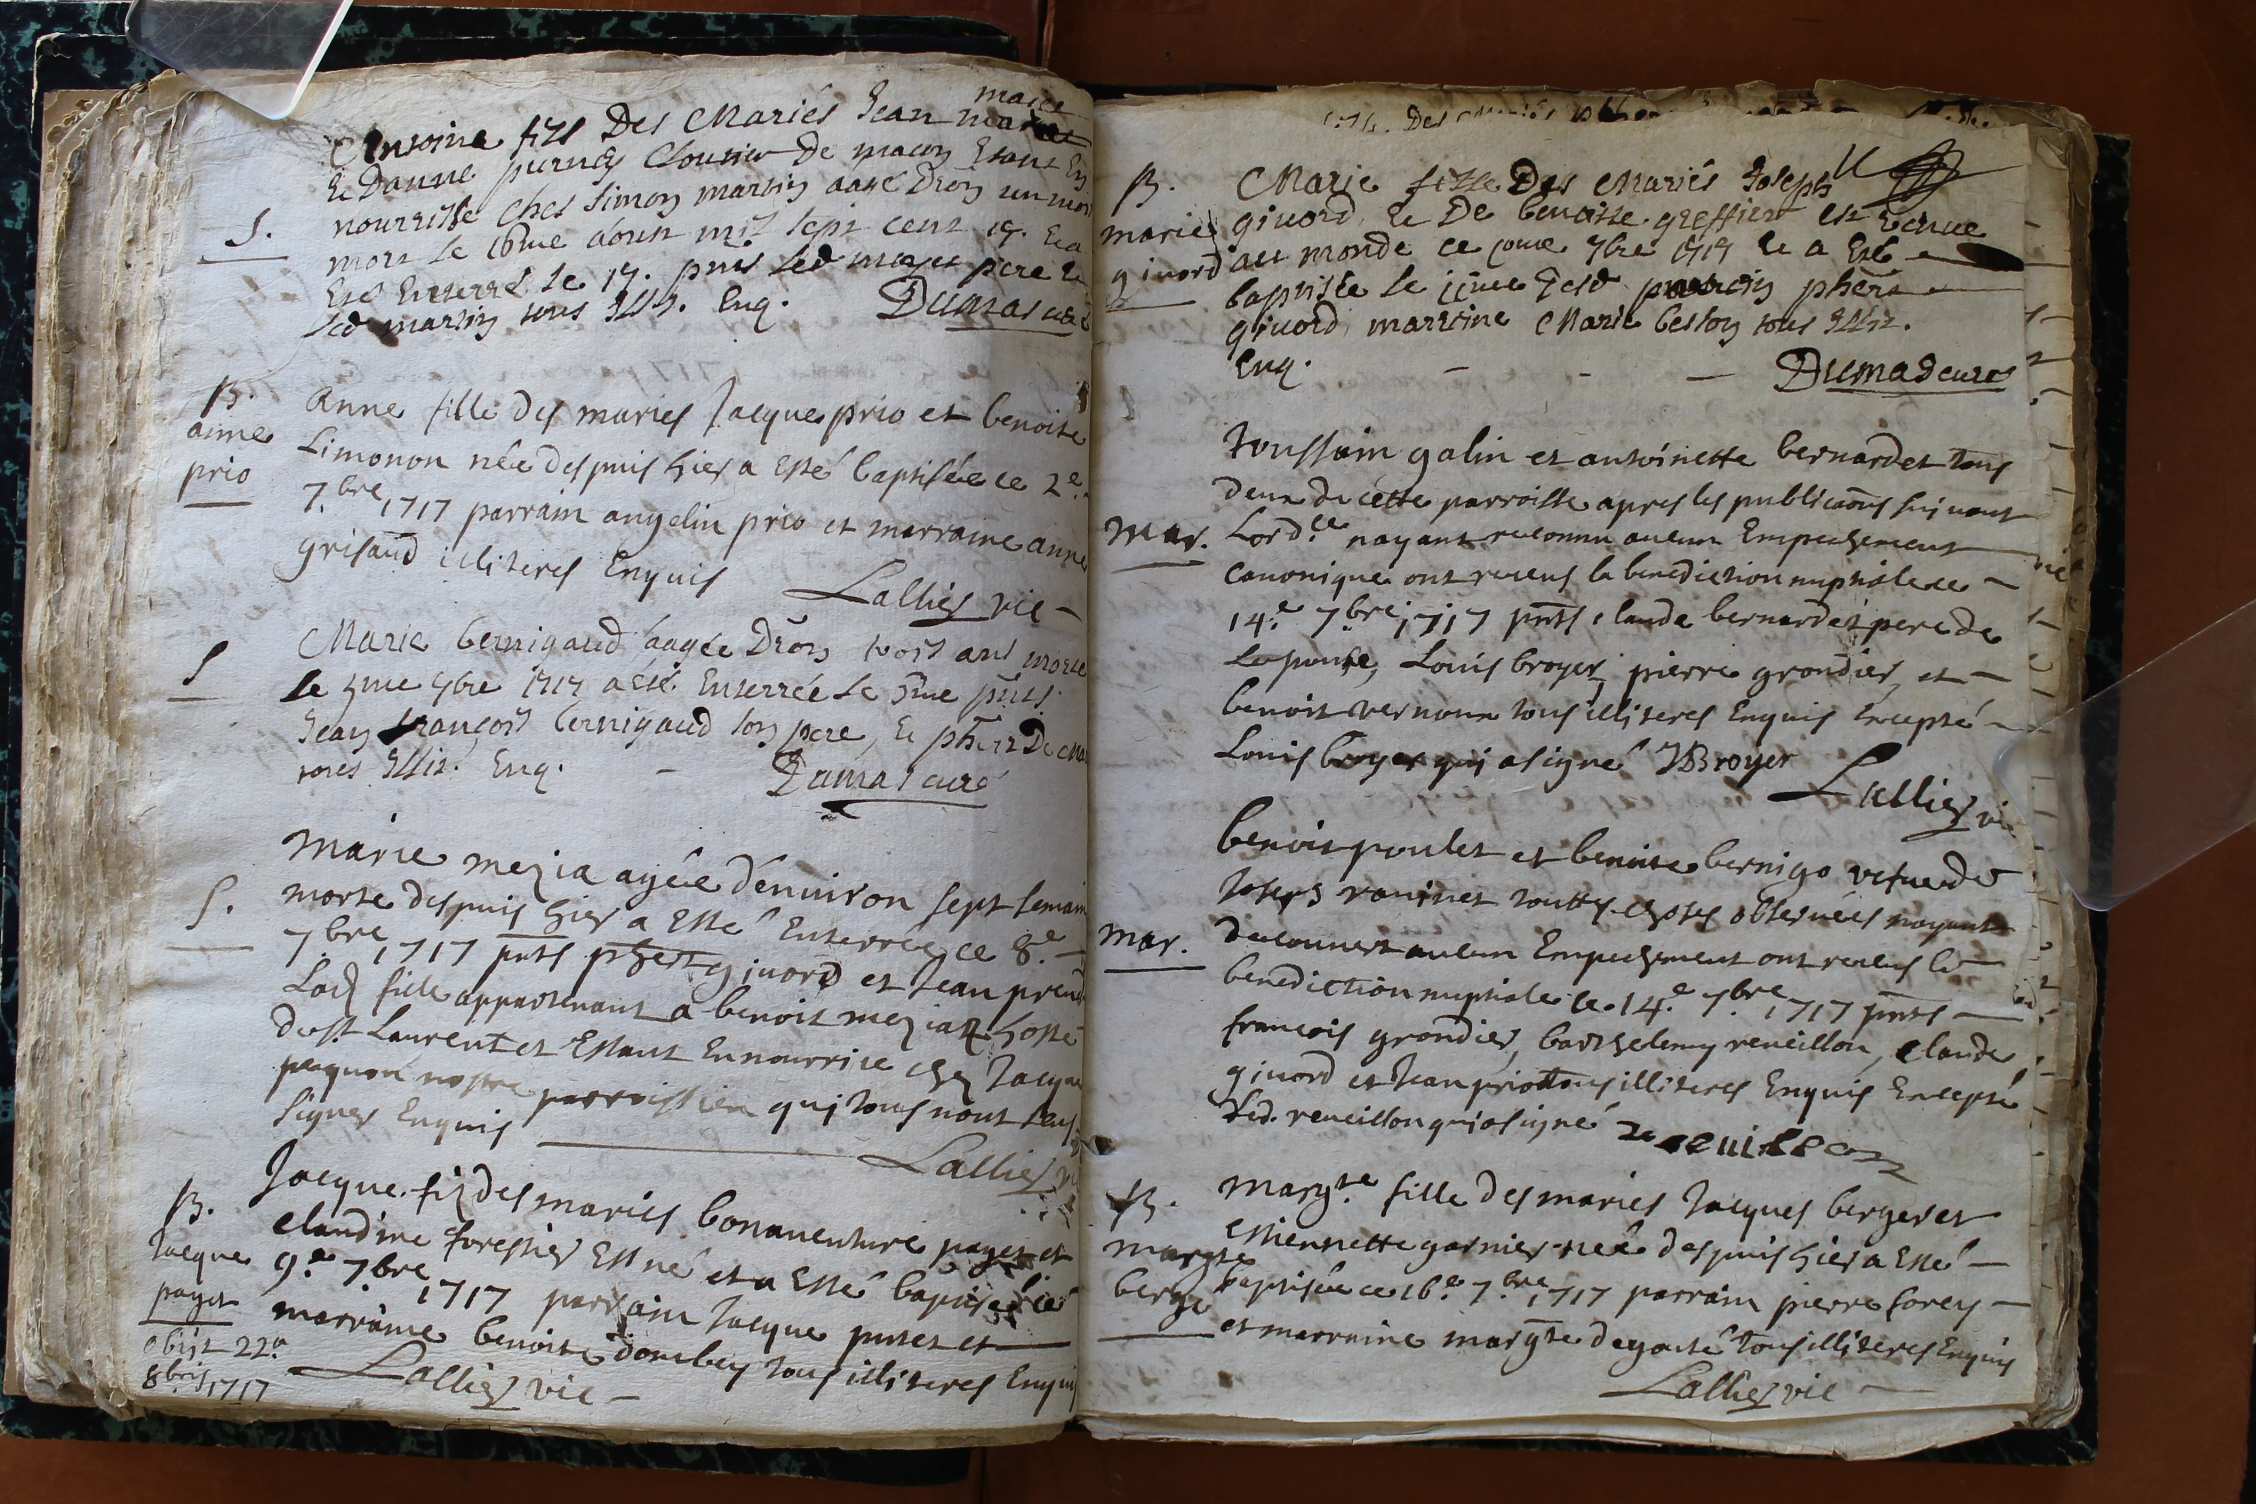 Antoine fils Des Mariés Jean
Et Danne Cloutier De macon Estant En
nourrisse Ches Simon martin aagé Dron un mois
S.
mort le 16me aoust mil sept cent 17. Et a
Esté Enterré le 17. pnts led mayet pere Et
led martin tous Illit. Enq. Dumas curé
B.
anne
prio
anne fille des maries Jacque prio et benoite
Limonon née despuis hier a esté baptisée ce 2e.
7.bre 1717 parrain angelin prio et marraine anne
grisaud illiteres Enquis
Lallier vic
S
Marie bernigaud aagée Dron trois ans morte
le 4me 7bre 1717 a esté Enterrée le 5me pnts
Jean françois bernigaud son pere, Et
tous Illit. Enq. - Dumas curé
S.
marie mezia agée d'environ sept semain
morte despuis hier a Esté Enterrée ce 8.e
7.bre 1717 pnts phert givord et Jean
Lad fille appartenant a benoit meziat hoste
de st Laurent et Estant En nourrice chez Jacque
paquon nostre parroissien qui tous n'ont sçeu
signer Enquis
Lallier
B.
Jacque
payet
obijt 22a
8bris 1717
Jacque fiz des maries bonaventure payet et
claudine forestier Est né et a Esté baptisé le
9.e 7.bre 1717 parrain Jacque putet et
marraine benoite dombey tous illiteres Enquis
Lallier vic
B.
marie
givord
Marie fille Des Mariés Joseph
givord Et De benoitte greffier est venue
au monde ce 10me 7bre 1717 Et a Esté
baptisée le 11me parrein phert
givord, marreine Marie besson tous Illit.
Enq. - - - Dumas curé
Mar.
Toussain galin et antoinette bernardet tous
deux de cette parroisse apres les publicaons suivant
Lord.ce nayant reconnu aucun Empechement
canonique ont receus la benediction nuptiale ce
14.e 7.bre 1717 pnts claude bernardet pere de
Lespouse, Louis broyer, pierre grondier, et
benoit vernoux tous illiteres Enquis Excepté
Louis broyer qui a signé Broyer
Lallier vi
Mar.
benoit poulet et benoite bernigo vefue de
Joseph ravinet touttes choses observées nayant
decouvert aucun Empechement ont receus la
benediction nuptiale ce 14.e 7.bre 1717 pnts
francois grondier, barthelemy reveillon, claude
givord et Jean prio tous illiteres Enquis Excepté
Led. reveillon qui a signé
B.
margte
berge
margte fille des maries Jacques berger et
estiennette garnier née despuis hier a Esté
baptisée ce 16.e 7.bre 1717 parrain pierre forey
et marraine margte tous illiteres Enquis
Lallier vic